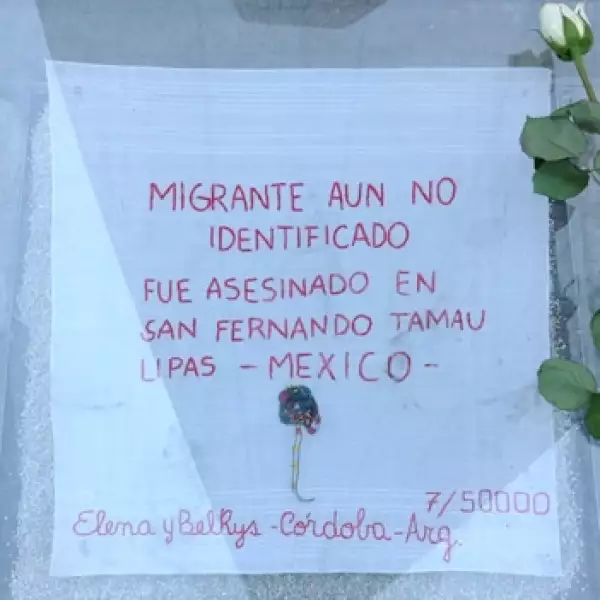 MIGRANTE AUN NO
IDENTIFICADO
FUE ASESINADO EN
SAN FERNANDO TAMAU
LIPAS - MEXICO -
7/50000
Elena y Belkys - Córdoba - Arg.